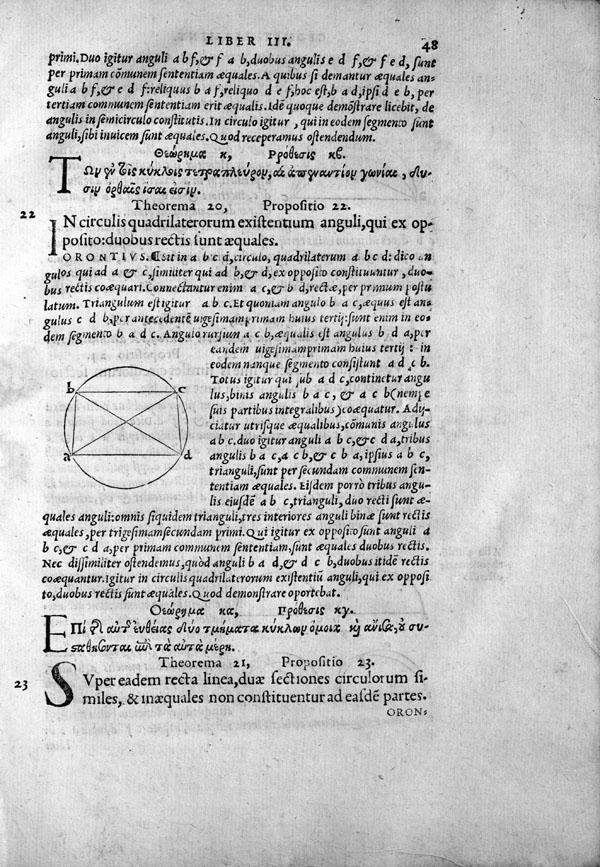 LIBER III. 48
primi. Duo igitur anguli a b f, & f a b, duobus angulis e d f, & f e d, sunt
per primam cõmunem sententiam æquales. A quibus si demantur æquales an-
guli a b f, & e d f: reliquus b a f, reliquo d e f, hoc est, b a d, ipsi d e b, per
tertiam communem sententiam erit æqualis. Idẽ quoque demõstrare licebit, de
angulis in semicirculo constitutis. In circulo igitur, qui in eodem segmento sunt
anguli, sibi inuicem sunt æquales. Quod receperamus ostendendum.
Θεώρημα κ, Πρόθεσις κβ.
Τῶν ἐν τοῖς κύκλοις τετραπλεύρων, αἱ ἀπεναντίον γωνίαι, δυ-
σὶν ὀρθαῖς ἴσαι εἰσίν.
Theorema 20, Propositio 22.
22 IN circulis quadrilaterorum existentium anguli, qui ex op-
posito: duobus rectis sunt æquales.
ORONTIVS. ¶Sit in a b c d, circulo, quadrilaterum a b c d: dico an
gulos qui ad a & c, similiter qui ad b, & d, ex opposito constituuntur, duo-
bus rectis coæquari. Connectantur enim a c, & b d, rectæ, per primum postu
latum. Triangulum est igitur a b c. Et quoniam angulo b a c, æquus est an-
gulus c d b, per antecedentẽ uigesimamprimam huius tertij: sunt enim in eo-
dem segmento b a d c. Angulo rursum a c b, æqualis est angulus b d a, per
eandem uigesimamprimam huius tertij: in
eodem nanque segmento consistunt a d c b.
Totus igitur qui sub a d c, continetur angu
lus, binis angulis b a c, & a c b (nempe
suis partibus integralibus) coæquatur. Adij-
ciatur utrisque æqualibus, cõmunis angulus
a b c. duo igitur anguli a b c, & c d a, tribus
angulis b a c, a c b, & c b a, ipsius a b c,
trianguli, sunt per secundam communem sen-
tentiam æquales. Eisdem porrò tribus angu-
lis eiusdẽ a b c, trianguli, duo recti sunt æ-
b c
a d
quales anguli: omnis siquidem trianguli, tres interiores anguli binæ sunt rectis
æquales, per trigesimamsecundam primi. Qui igitur ex opposito sunt anguli a
b c, & c d a, per primam communem sententiam, sunt æquales duobus rectis.
Nec dissimiliter ostendemus, quòd anguli b a d, & d c b, duobus itidẽ rectis
coæquantur. Igitur in circulis quadrilaterorum existentiũ anguli, qui ex opposi
to, duobus rectis sunt æquales. Quod demonstrare oportebat.
Θεώρημα κα, Πρόθεσις κγ.
Ἐπὶ τῆς αὐτῆς εὐθείας δύο τμήματα κύκλων ὅμοια καὶ ἄνισα, οὐ συ-
σταθήσονται ἐπὶ τὰ αὐτὰ μέρη.
Theorema 21, Propositio 23.
23 SVper eadem recta linea, duæ sectiones circulorum si-
miles, & inæquales non constituentur ad easdẽ partes.
ORON-